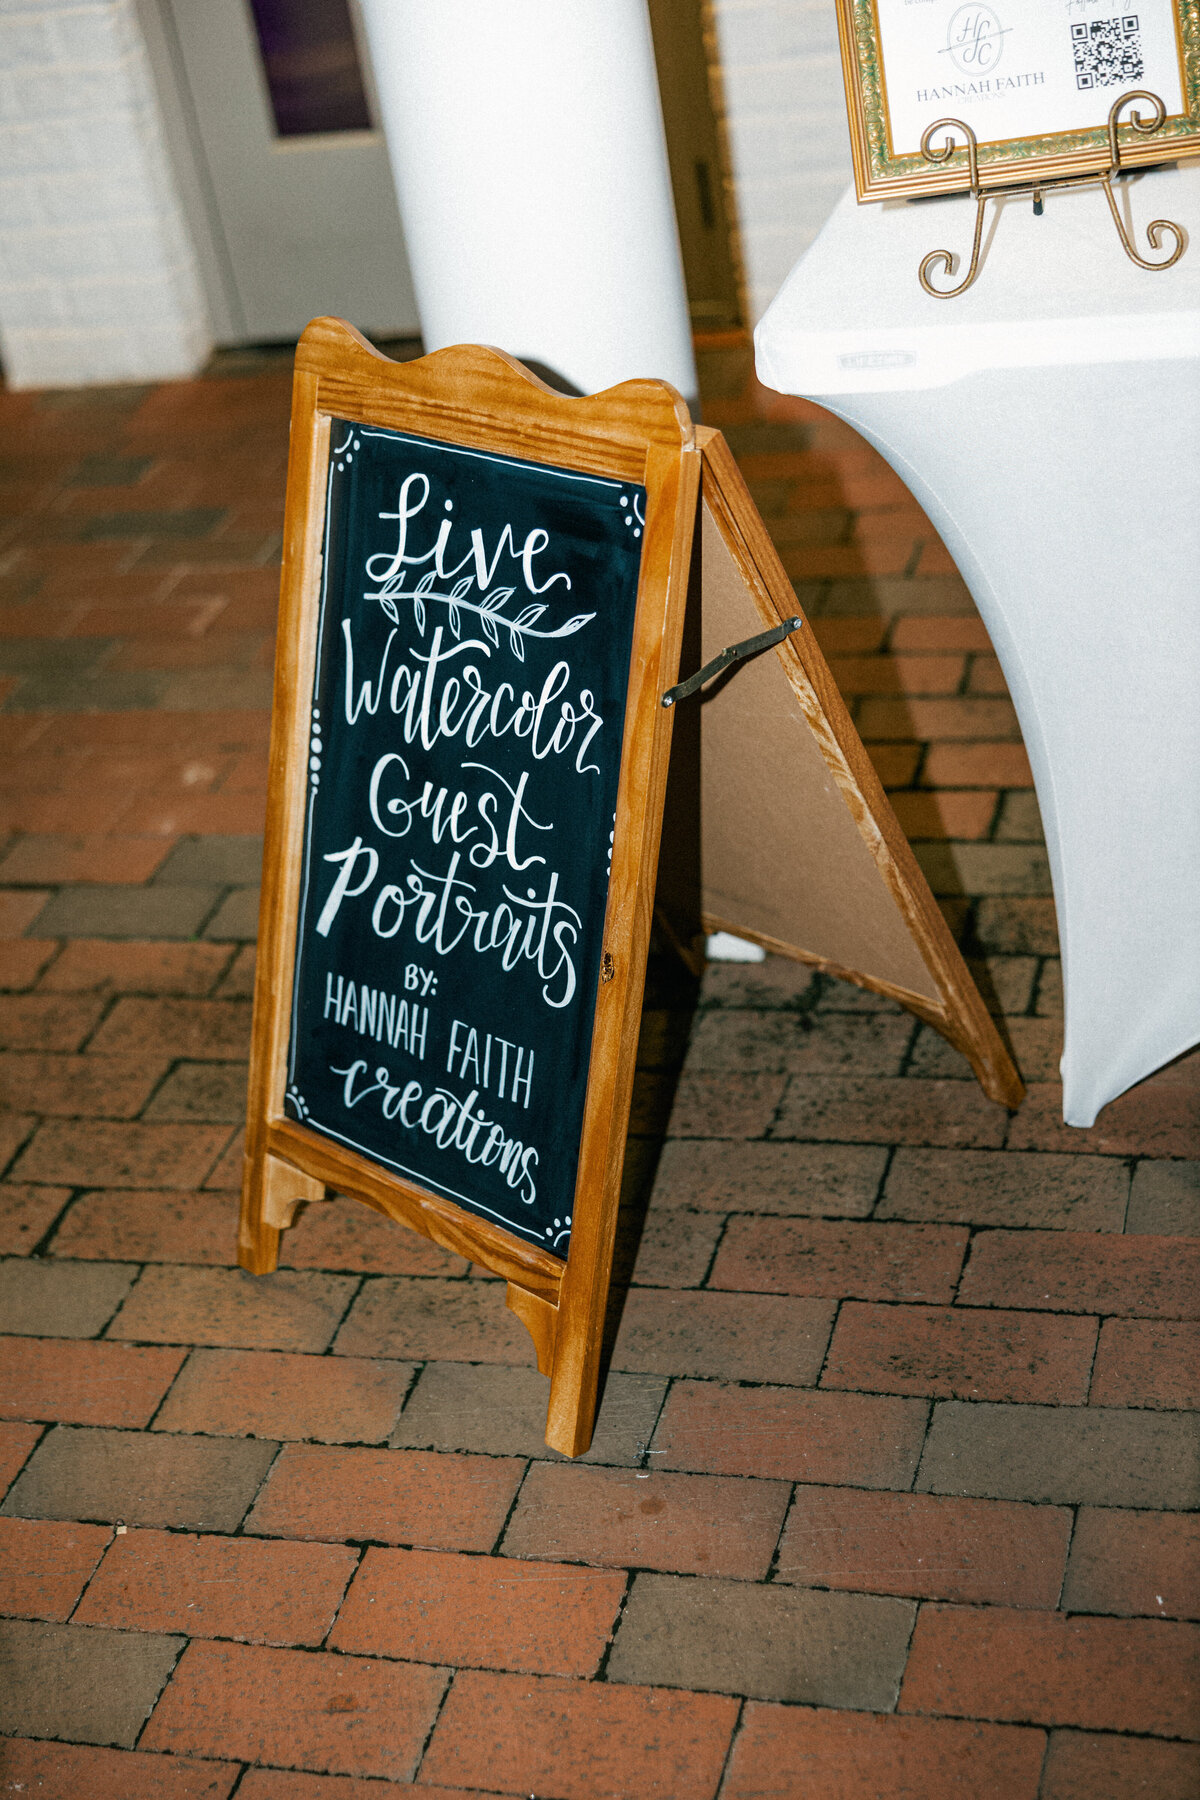 HFC
HANNAH FAITH
CREATIONS
Live
Watercolor
Guest
Portraits
BY:
HANNAH FAITH
creations